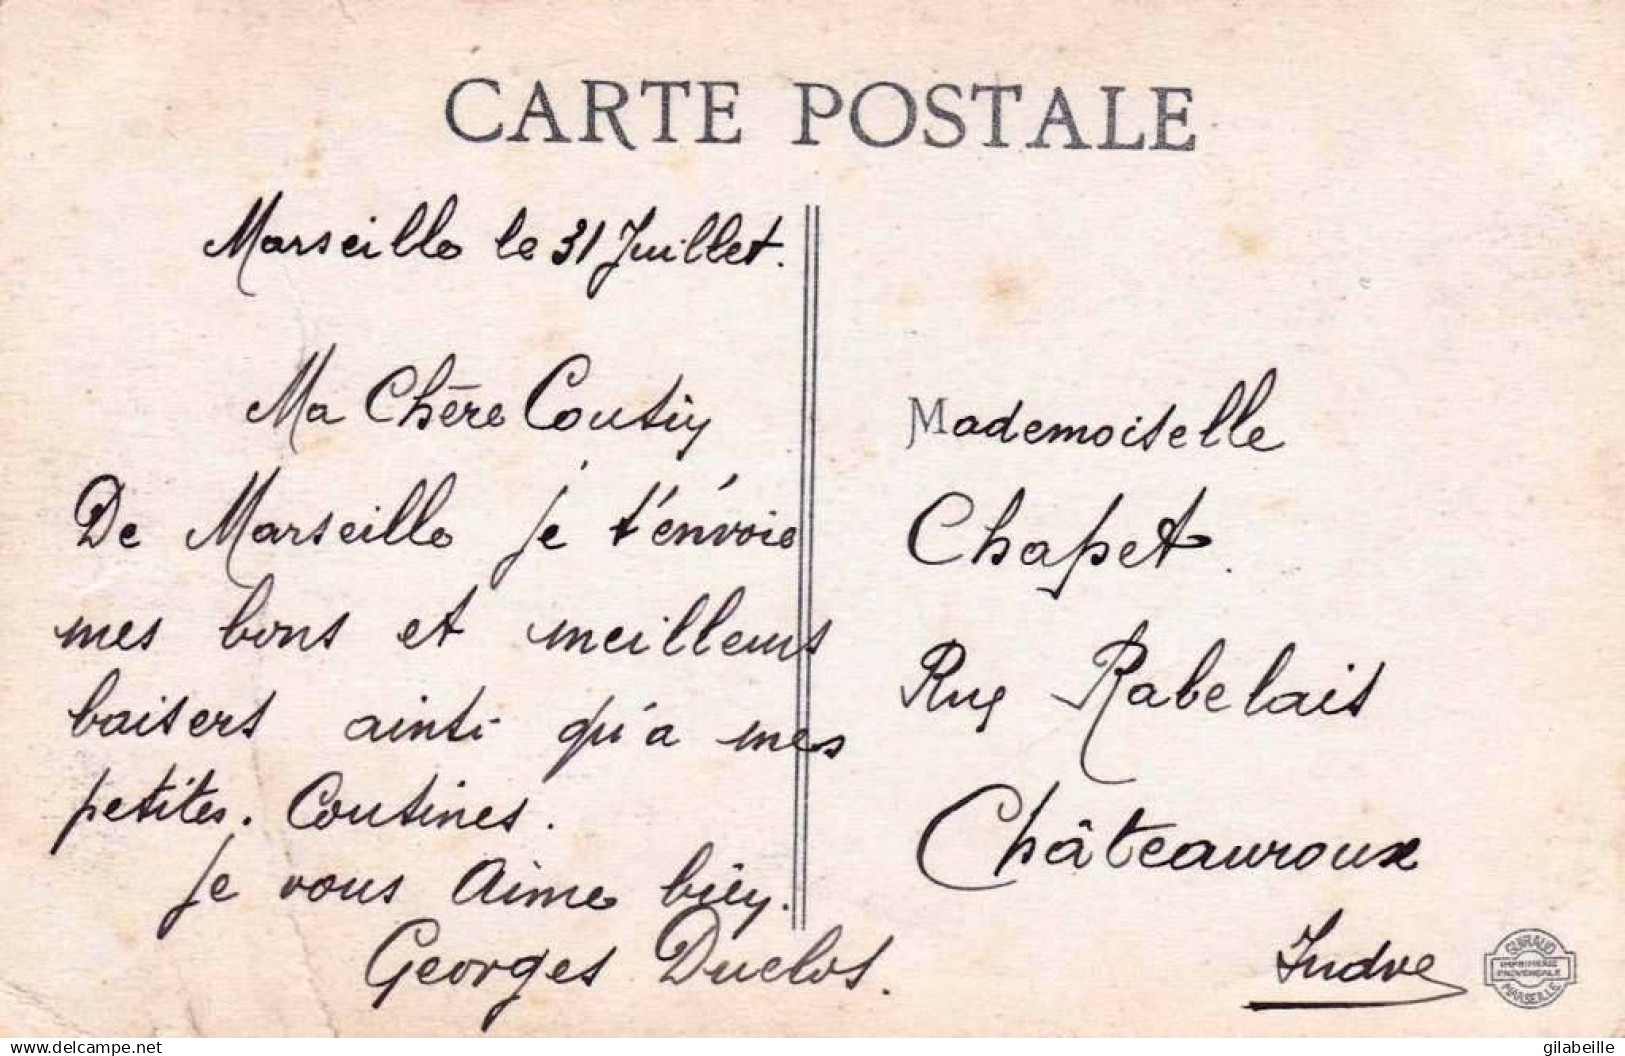 CARTE POSTALE
Marseille le 31 Juillet.
Ma Chère Cousin
De Marseille je t'envoie
mes bons et meilleurs
baisers ainsi qu'a mes
petites. Cousines.
je vous aime bien.
Georges Duclos.
Mademoiselle
Chapet.
Rue Rabelais
Châteauroux
Indre
GUIRAUD
IMPRIMERIE
PROVENÇALE
MARSEILLE
gilabeille
www.delcampe.net